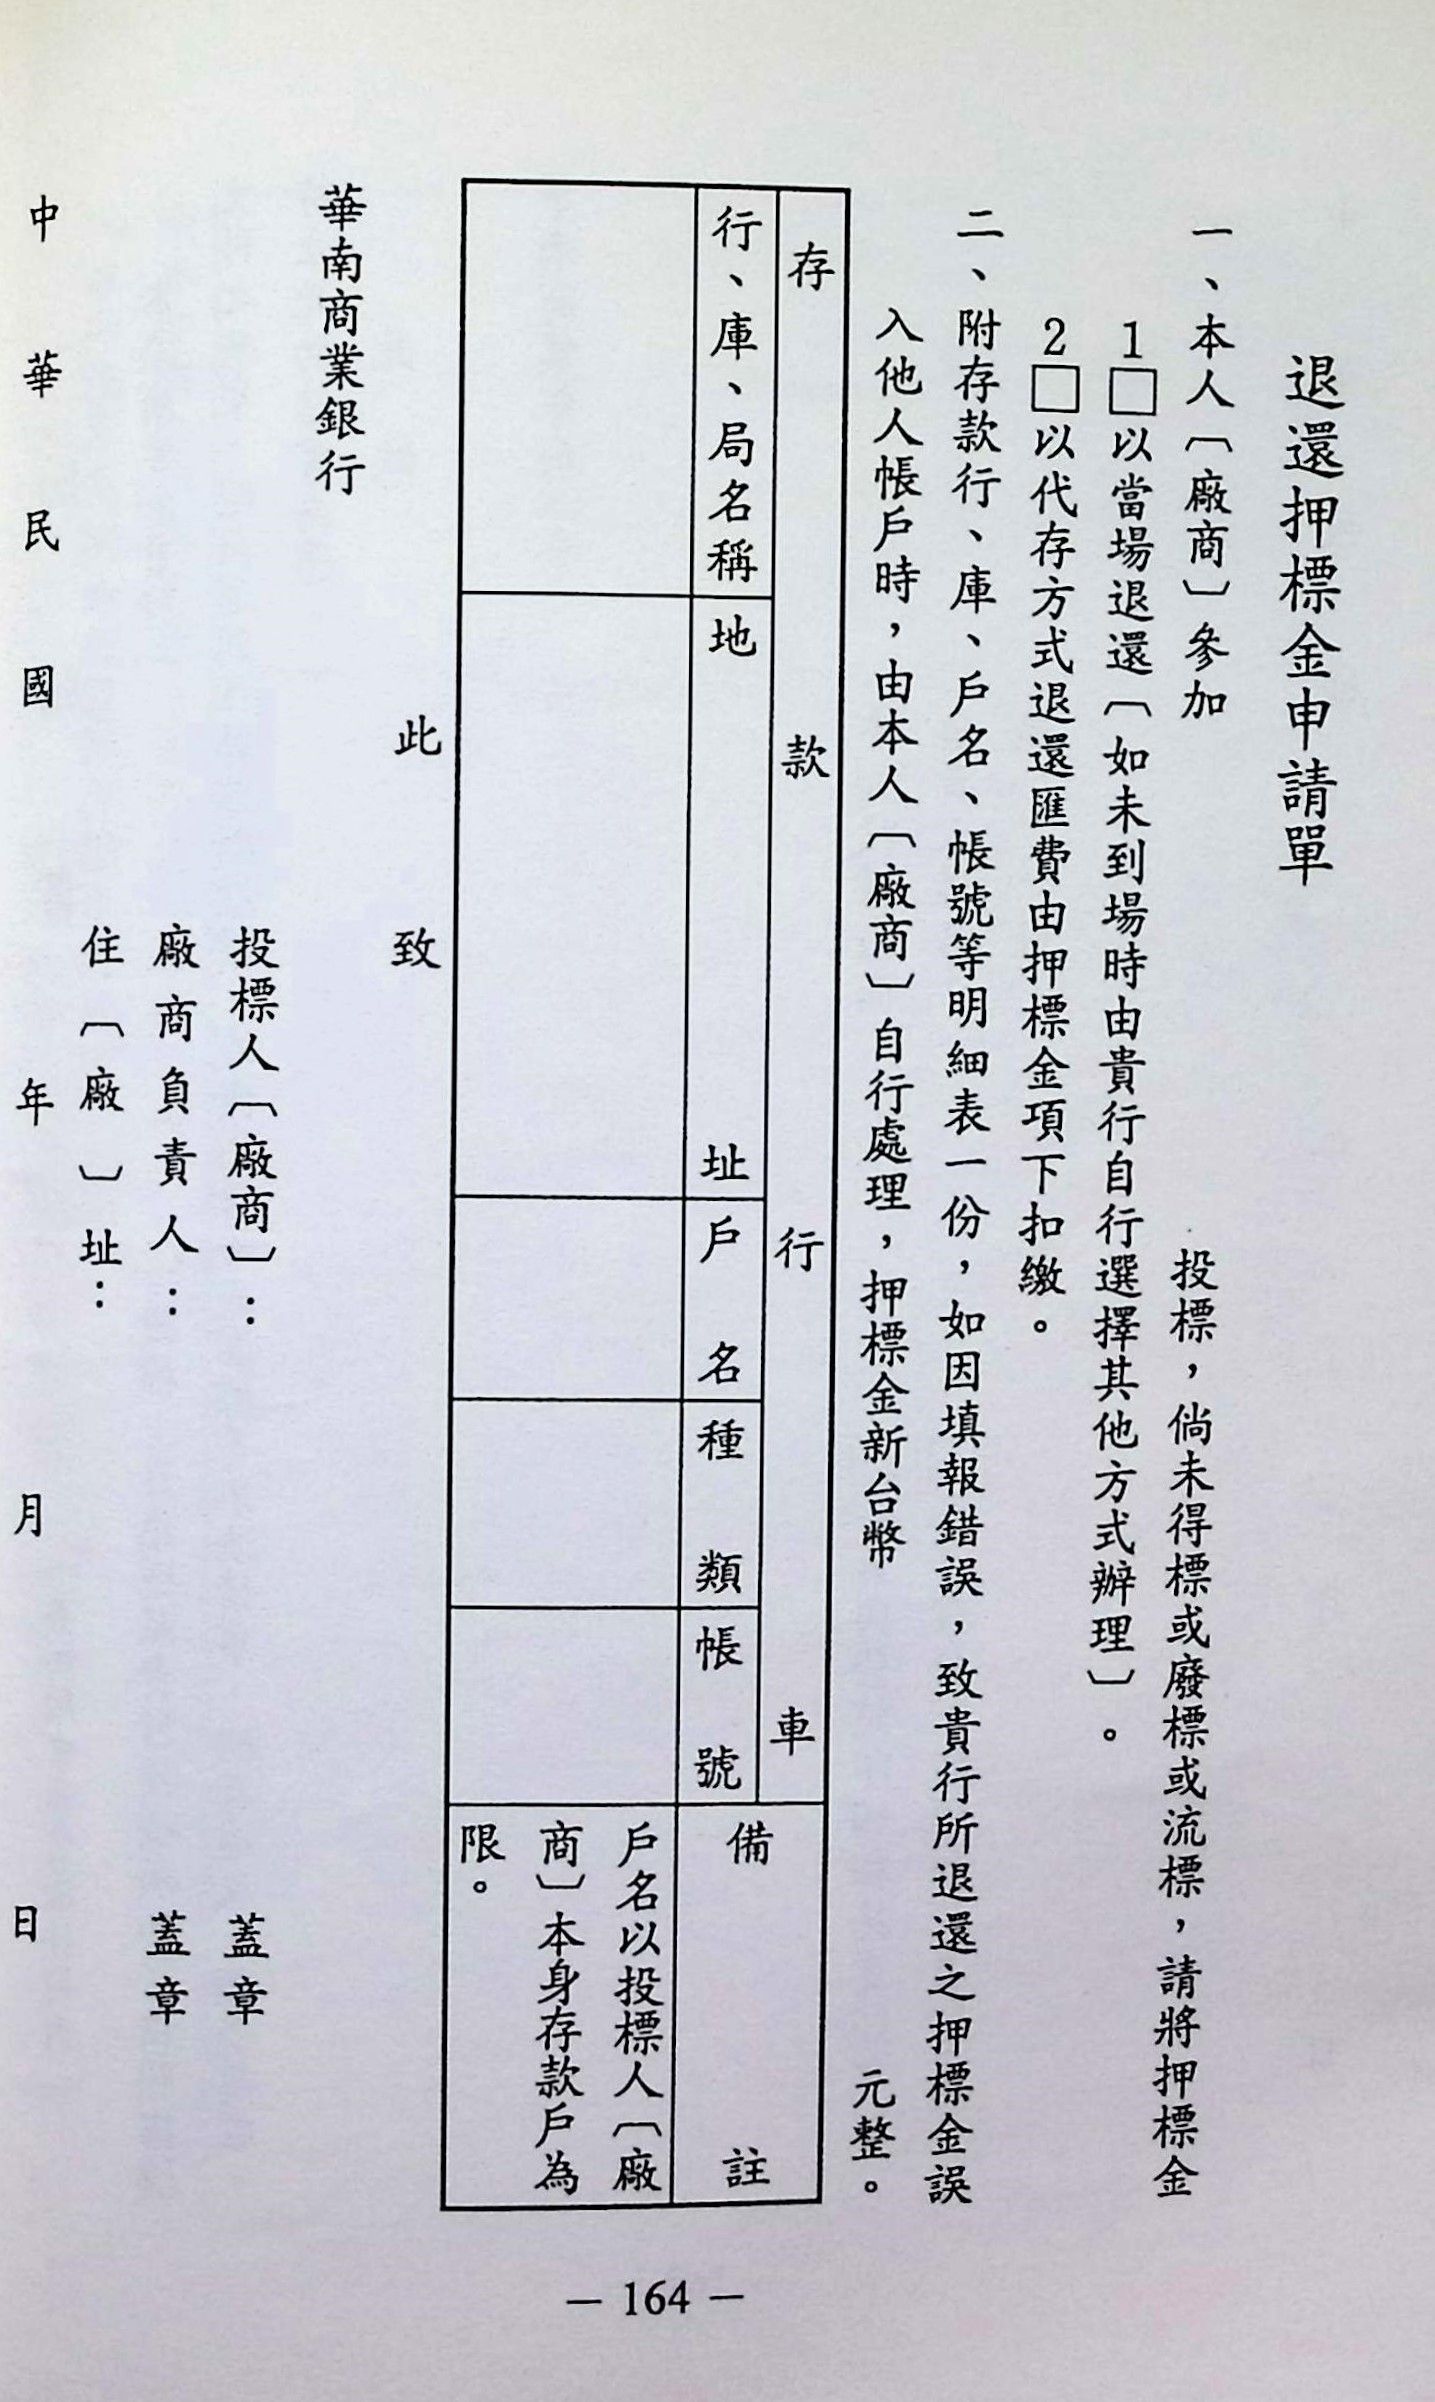 退還押標金申請單
一、本人〔廠商〕參加 投標，倘未得標或廢標或流標，請將押標金
1□以當場退還〔如未到場時由貴行自行選擇其他方式辦理〕。
2□以代存方式退還匯費由押標金項下扣繳。
二、附存款行、庫、戶名、帳號等明細表一份，如因填報錯誤，致貴行所退還之押標金誤
入他人帳戶時，由本人〔廠商〕自行處理，押標金新台幣 元整。
存 款 行 車
備 註
行、庫、局名稱
地 址
戶 名
種 類
帳 號
戶名以投標人〔廠
商〕本身存款戶為
限。
此 致
華南商業銀行
投標人〔廠商〕： 蓋章
廠商負責人： 蓋章
住〔廠〕址：
中 華 民 國 年 月 日
— 164 —